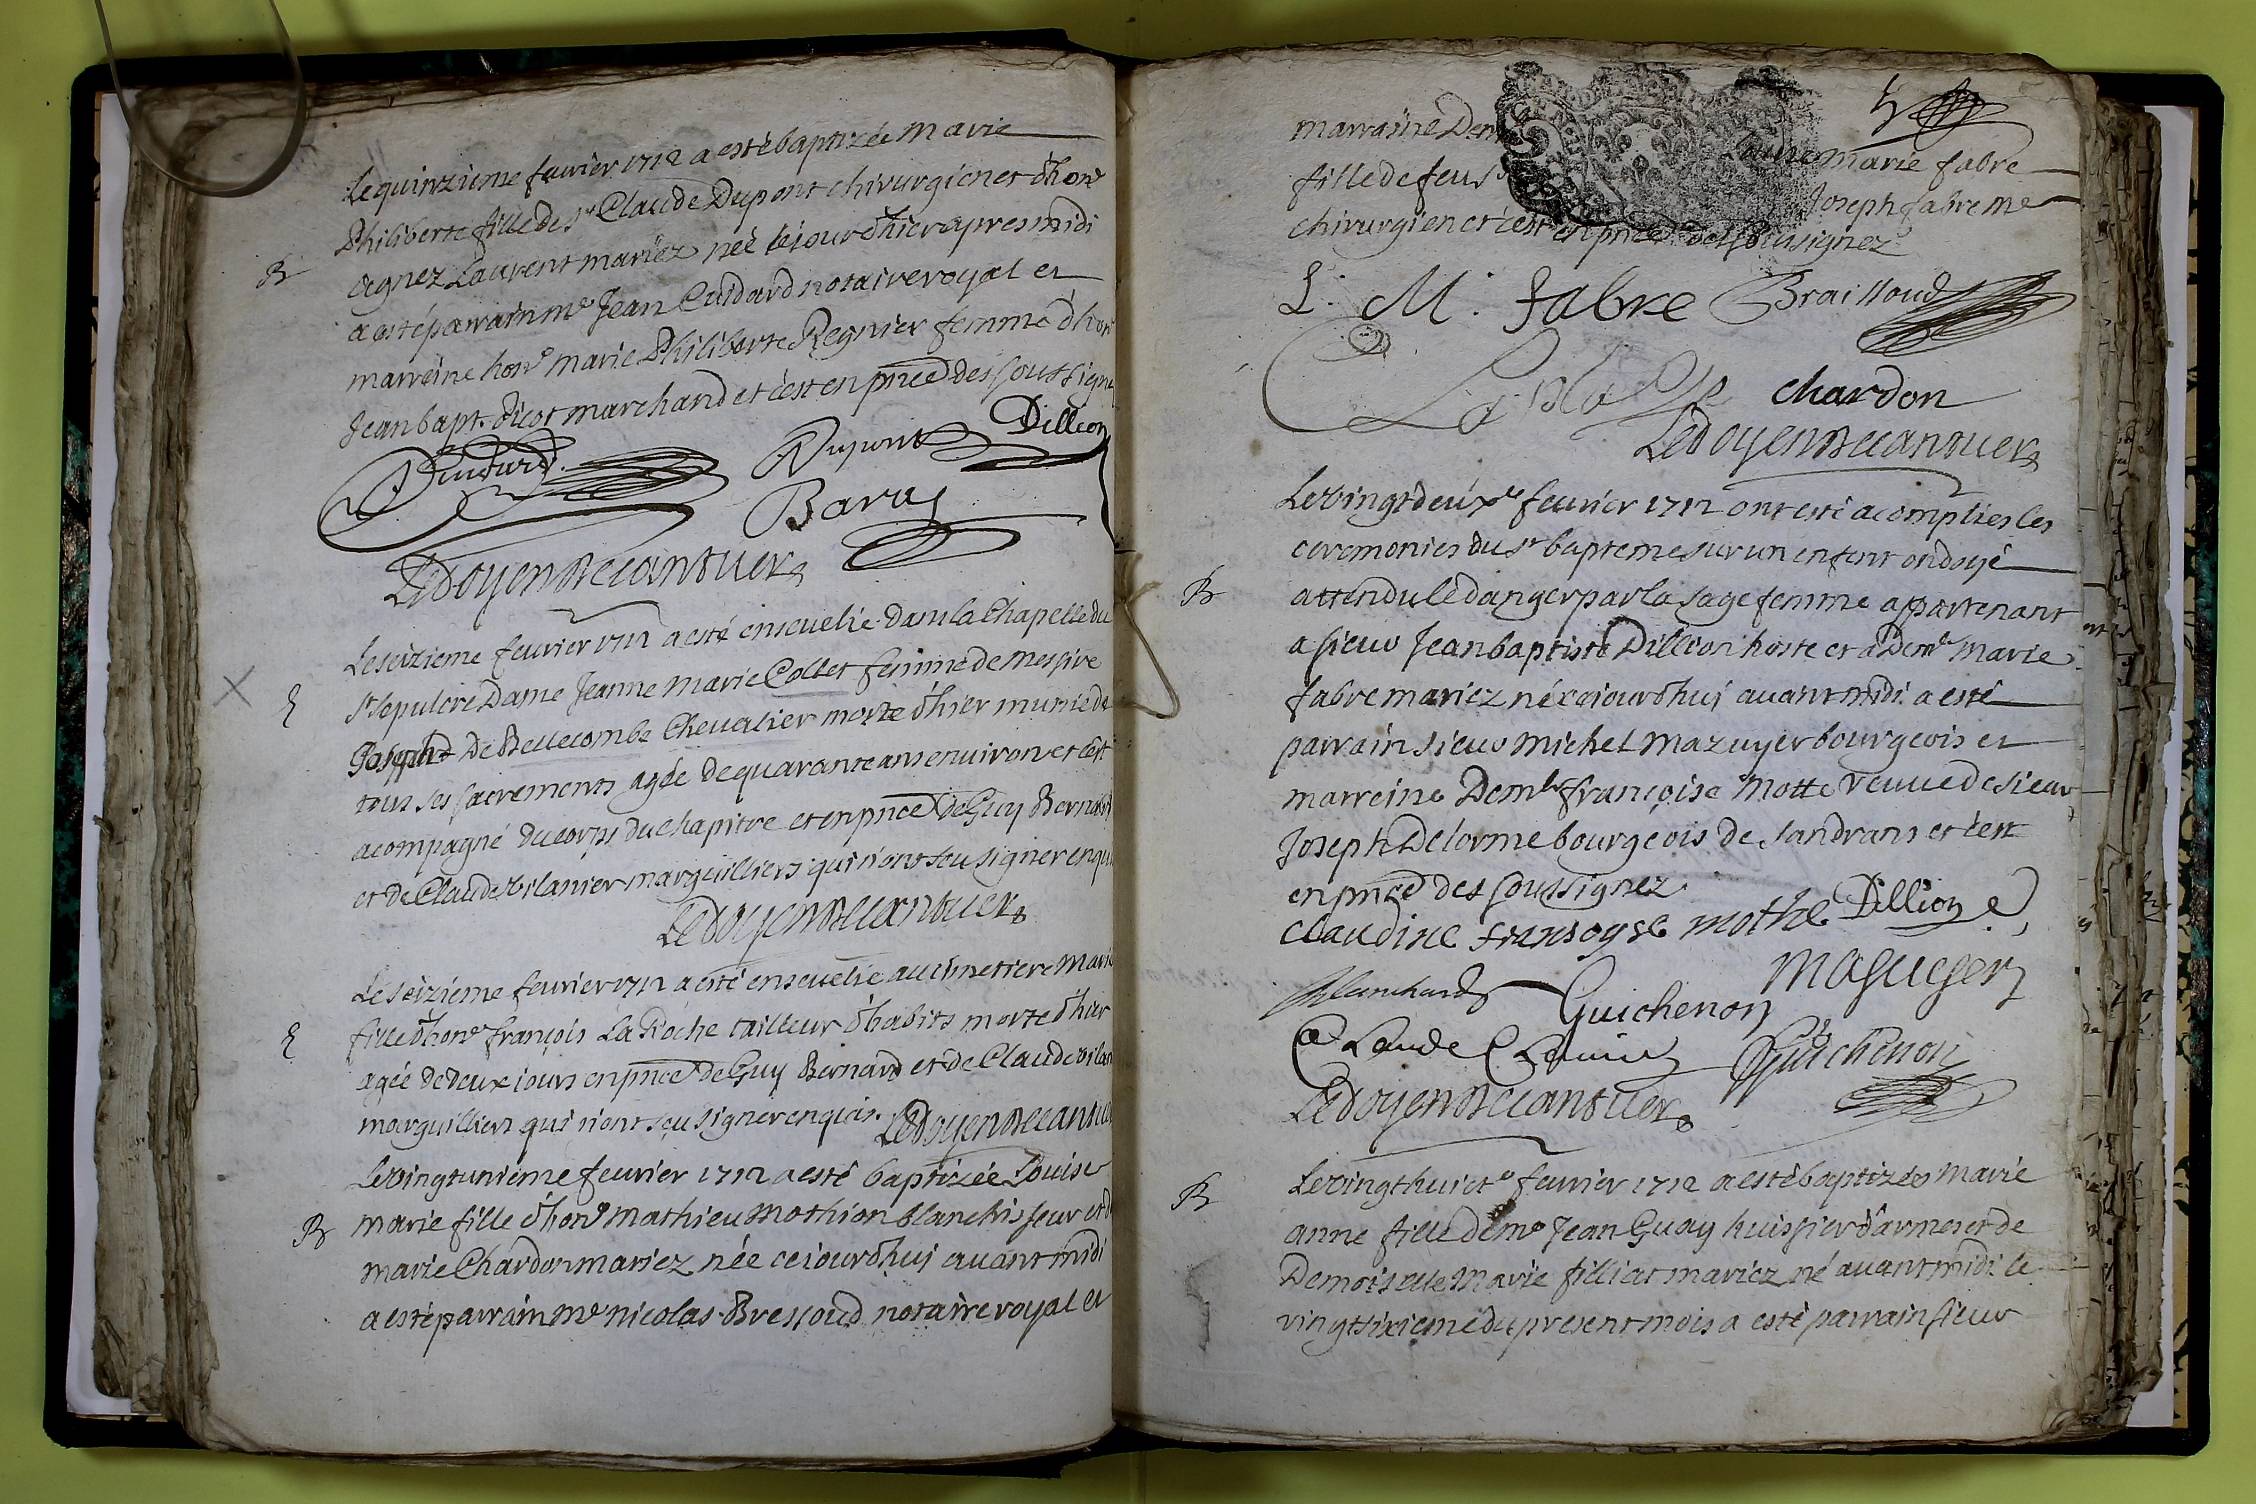 Le quinzieme feuvrier 1712 a esté baptizée Marie
Philiberte fille de Sr Claude Dupont chirurgien et d'honê
B
agnez Laurent mariez née le jour d'hier apres midi
a esté parrain me Jean Cuidard notaire royal et
marreine honê Marie Philiberte Regnier femme d'honê
Jean bapt. dicot marchand et c'est en pnce des soussigne
Dupont Dillion
Baray
Le doyen de cantuer
Le seizieme feuvrier 1712 a esté enseuelie dans la Chapelle du
St sepulcre Dame Jeanne Marie Collet femme de Messire
E
Gaspard de Bellecombe Chevalier morte d'hier munie de
tous ses sacrements agée de quarante ans environ et c'est
acompagné du corps du chapitre et en pnce de Guy Bernard
et de Claude vilanier marguilliers qui n'ont sçeu signer enquis
Le doyen de cantuer
Le seizieme feuvrier 1712 a esté enseuelie au cimetiere Marie
E
fille d'honê françois La Roche tailleur d'habits morte d'hier
agée de deux jours en pnce de Guy Bernard et de Claude vilan
marguilliers qui n'ont sçeu signer enquis. Le doyen de cantuer
Le vingtunieme feuvrier 1712 a esté baptizée Louise
B
marie fille d'honê Mathieu Mothion blanchisseur et de
marie Chardon mariez née cejourd'hui avant midi
a esté parrain me nicolas Bressoud notaire royal et
marraine Dem Louise marie fabre
fille de feu Sr Joseph fabre me
chirurgien et c'est en pnce des soussignez
L. M. fabre Braissoud
chardon
Le doyen de cantuer
Le vingtdeuxe feuvrier 1712 ont esté acomplies les
ceremonies du St bapteme sur un enfent ondoyé
B
attendu le danger par la sage femme appartenant
a sieur Jean baptiste Dillion hoste et a Demle Marie
fabre mariez né cejourd'hui avant midi. a esté
parrain sieur Michel Mazuyer bourgeois et
marreine Demle françoise Motte veuve de sieur
Joseph Delorme bourgeois de sandrans et c'est
en pnce des soussignez
claudine fransoyse mothe Dillion
Blanchard Guichenon Masueyer
Claude Guichenon
Le doyen de cantuer
Le vingthuicte feuvrier 1712 a esté baptizée Marie
B
anne fille de me Jean Guay huissier d'armes et de
Demoiselle Marie filliat mariez né avant midi le
vingtsixieme du present mois a esté parrain sieur